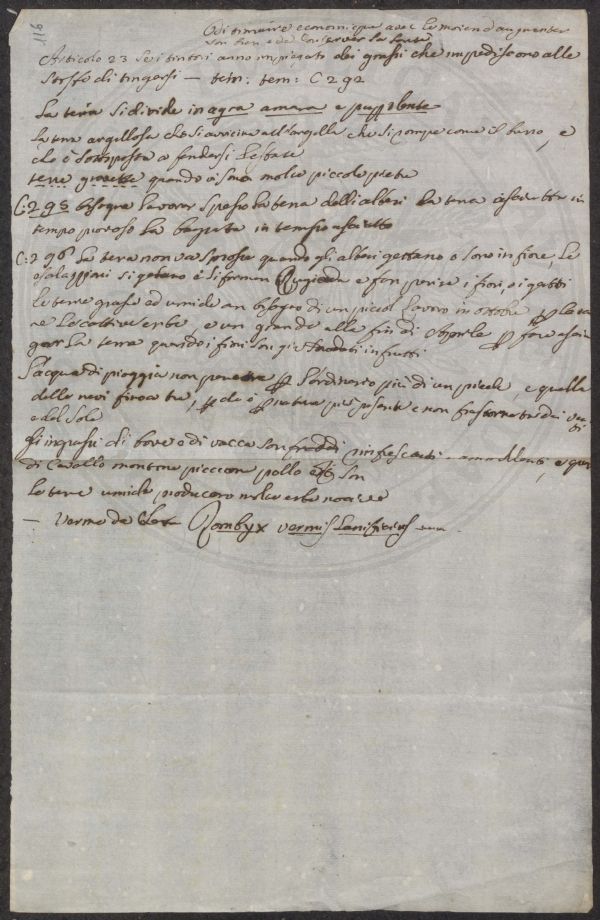 116
Dictionnaire economique avec le moien d'augmenter
son bien e de conserver sa santé
Articolo 23 Se i tintori anno impiegato dei grassi che impediscono alle
Stoffe di tingersi — tom: C 292
La terra si divide in agra amara e
La terra argillosa che si avvicina all'argilla che si rompe come il, e
che è sottoposta a fendersi l'estate
terre quando vi sono molte piccole pietre
C: 295 bisogna lavorar spesso la terra delli alberi la terra asciutta in
tempo piovoso la bagnata in tempo asciutto
C: 296 La terra non va smossa quando gli alberi gettano o sono in fiore, le
esalazioni si gettano e si fermano e fan perire i fiori, o i gabbi
le terre grasse ed umide an bisogno di un piccol lavoro in ottobre
le cattive erbe, e un grande alla fin di Aprile p fare asciu
gar la terra quando i fiori son già in frutti
l'acqua di pioggia non penetra p l'ordinario più di un piede, e quella
delle nevi fino a tre, p che è p natura più pesante e non frastornata dai venti
e dal Sole
Gi ingrassi di bove o di vacca son freddi rinfrescanti, e quei
di Cavallo montone piccione pollo son
Le terre umide producono molte erbe nocive
— Verme da Seta Bombyx vermis lanificus